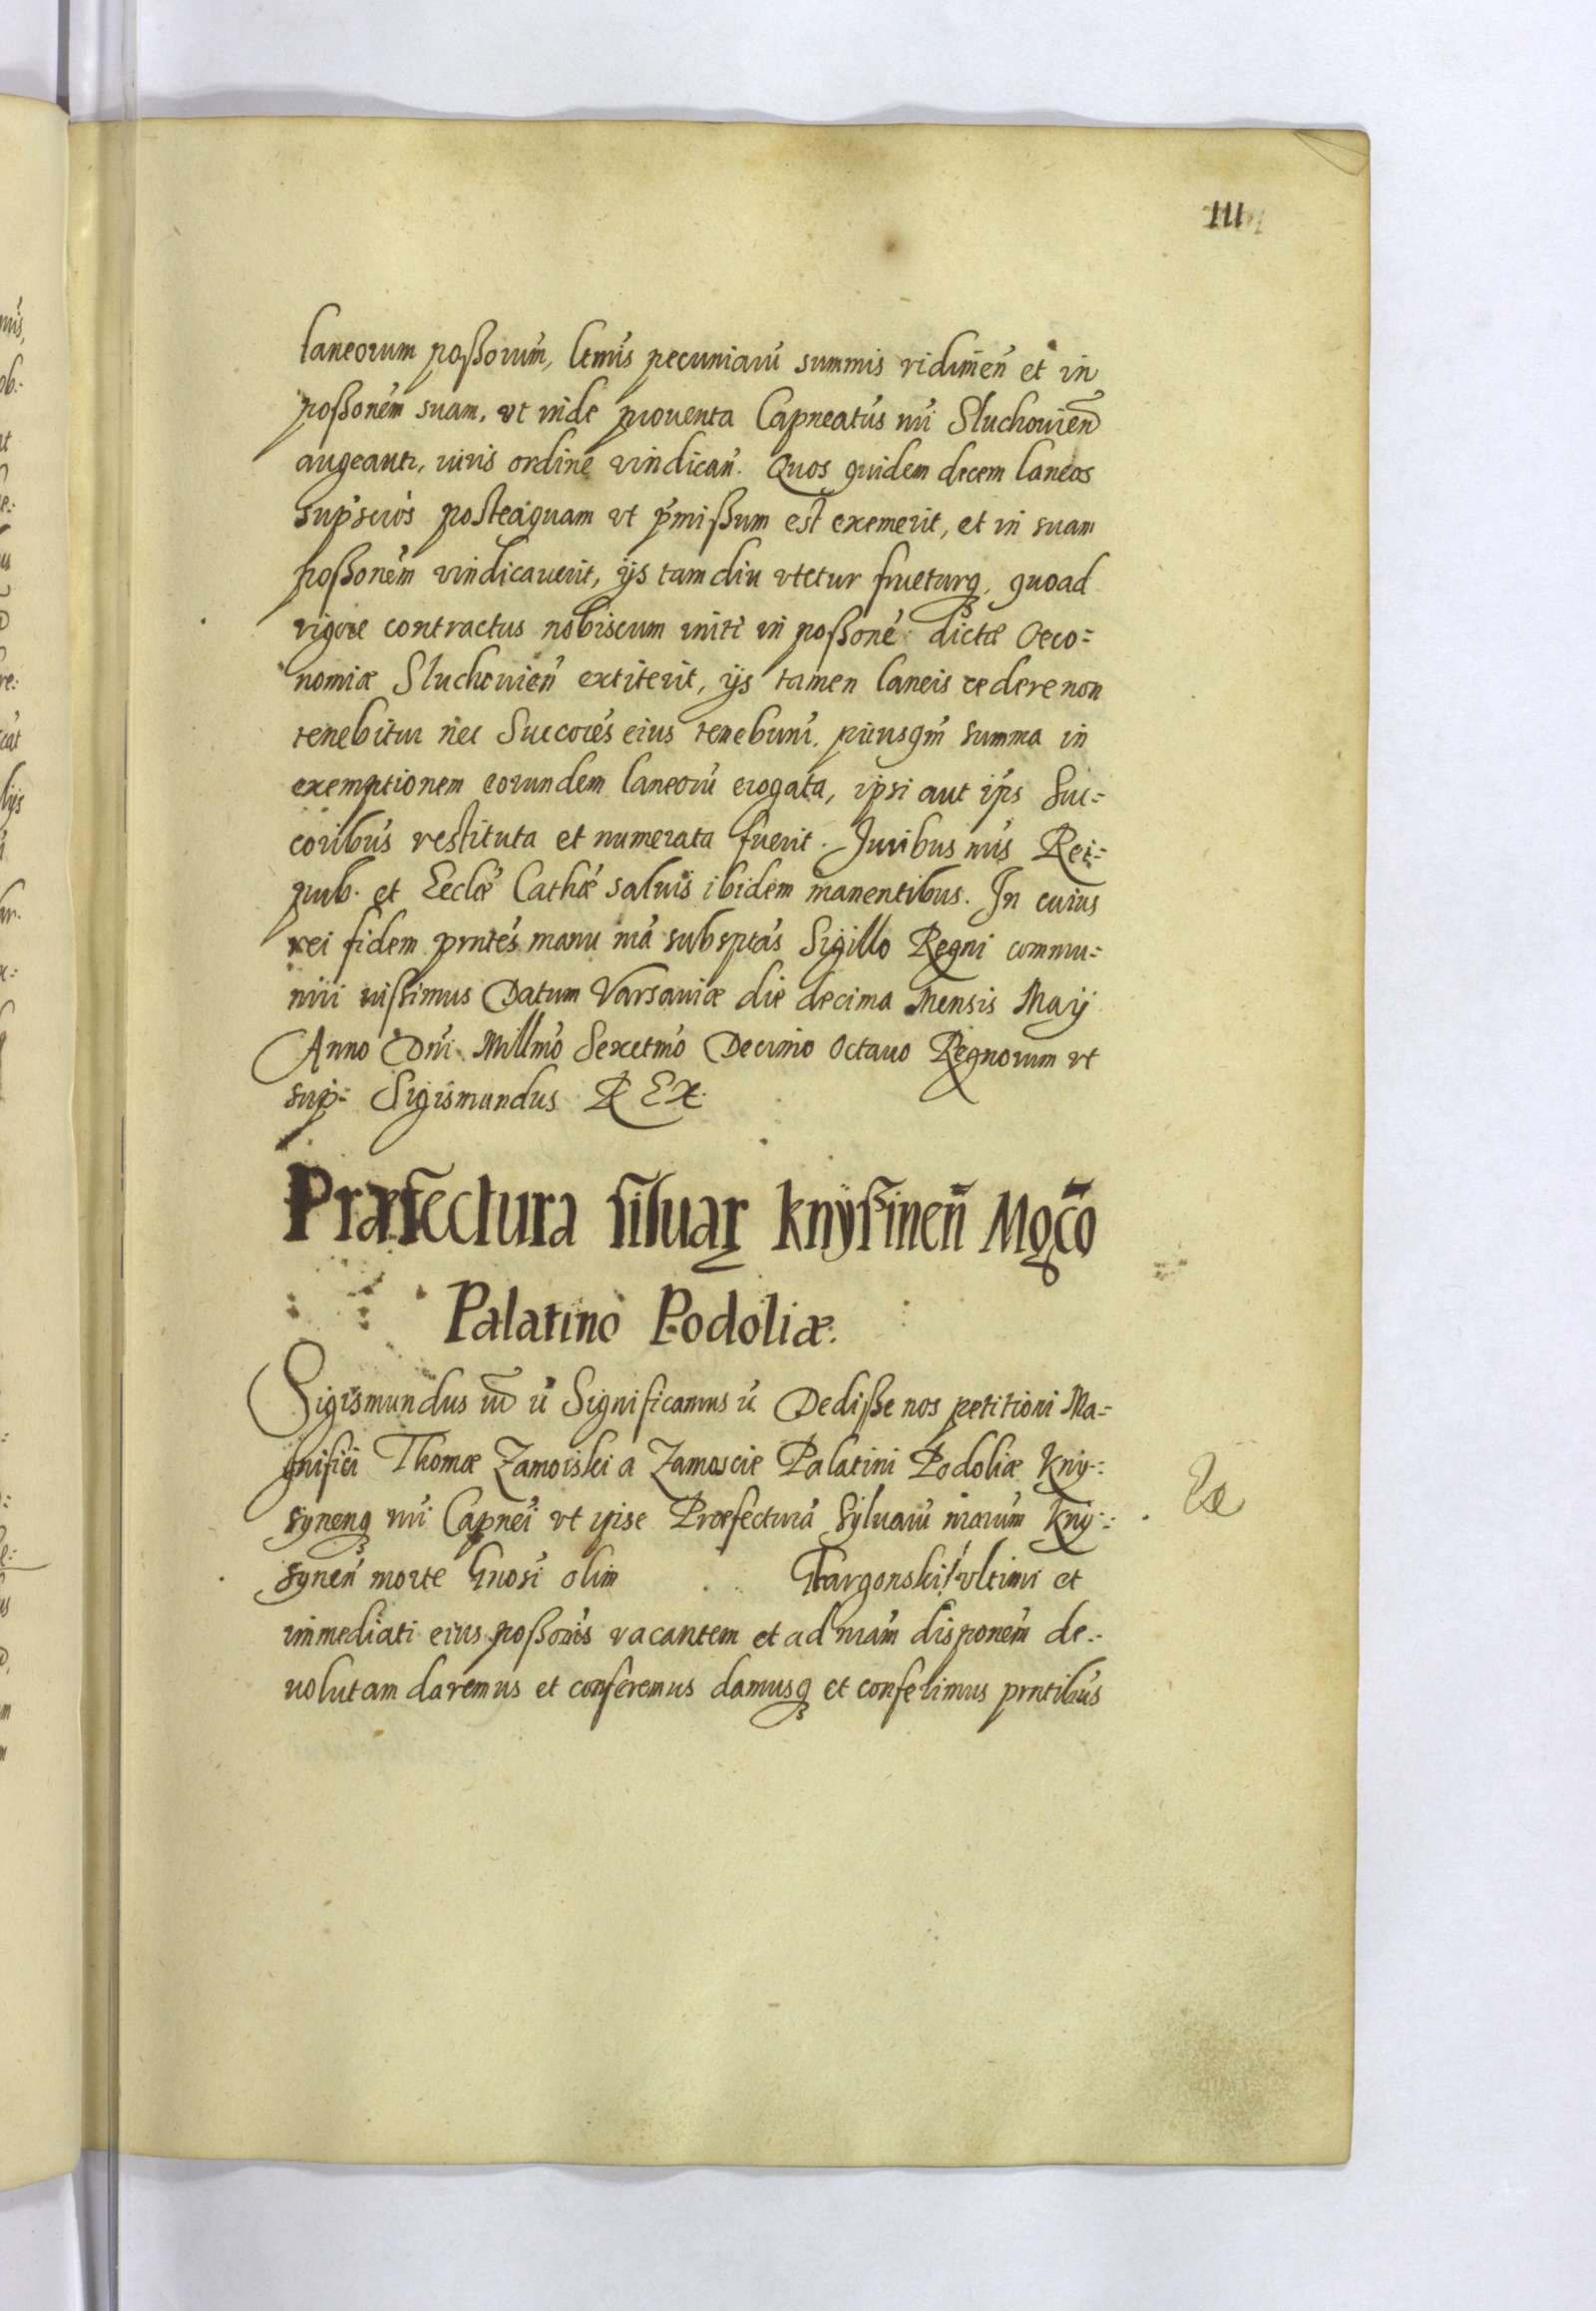 111
laneorum poßorum, lemis pecuniarū summis ridimen et in
poßonem suam, vt inde prouenta Capneatus nri Sluchouien
augeantr, iuris ordine vindican. Quos quidem decem laneos
supscios posteaquam vt pmißum est exemerit, et in suam
poßonem vindicauerit, ijs tam diu vtetur frueturq, quoad
vigore contractus nobiscum initi in poßone dictæ Oeco=
nomiæ Sluchouien extiterit, ijs tamen laneis cedere non
tenebitur nec Succores eius tenebunt. priusqm summa in
exemptionem eorundem laneorū erogata, ipsi aut ips Suc=
coribus restituta et numerata fuerit. Juribus nris Rei=
pub. et Ecclæ Cathæ saluis ibidem manentibus. In cuius
rei fidem prntes manu nra subsptas Sigillo Regni commu=
niri iussimus Datum Varsauiæ die decima Mensis Maij
Anno Dni Millmo Sexctmo Decimo Octauo Regnorum vt
sup= Sigismundus REX.
Præfectura siluaɼ knÿsinen Mgco
Palatino Podoliæ.
Sigismundus ūt Significamus ū Dediße nos petitioni Ma=
gnifici Thomæ Zamoiski a Zamoscie Palatini Podoliæ Kny=
synenq nri Capnei vt ipse Præfectura Sÿluarū nrarum Kny=
synen morte Gnosi olim Thargonski vltimi et
immediati eius poßoris vacantem et ad nram disponem de=
uolutam daremus et conferemus damusq et conferimus prntibus